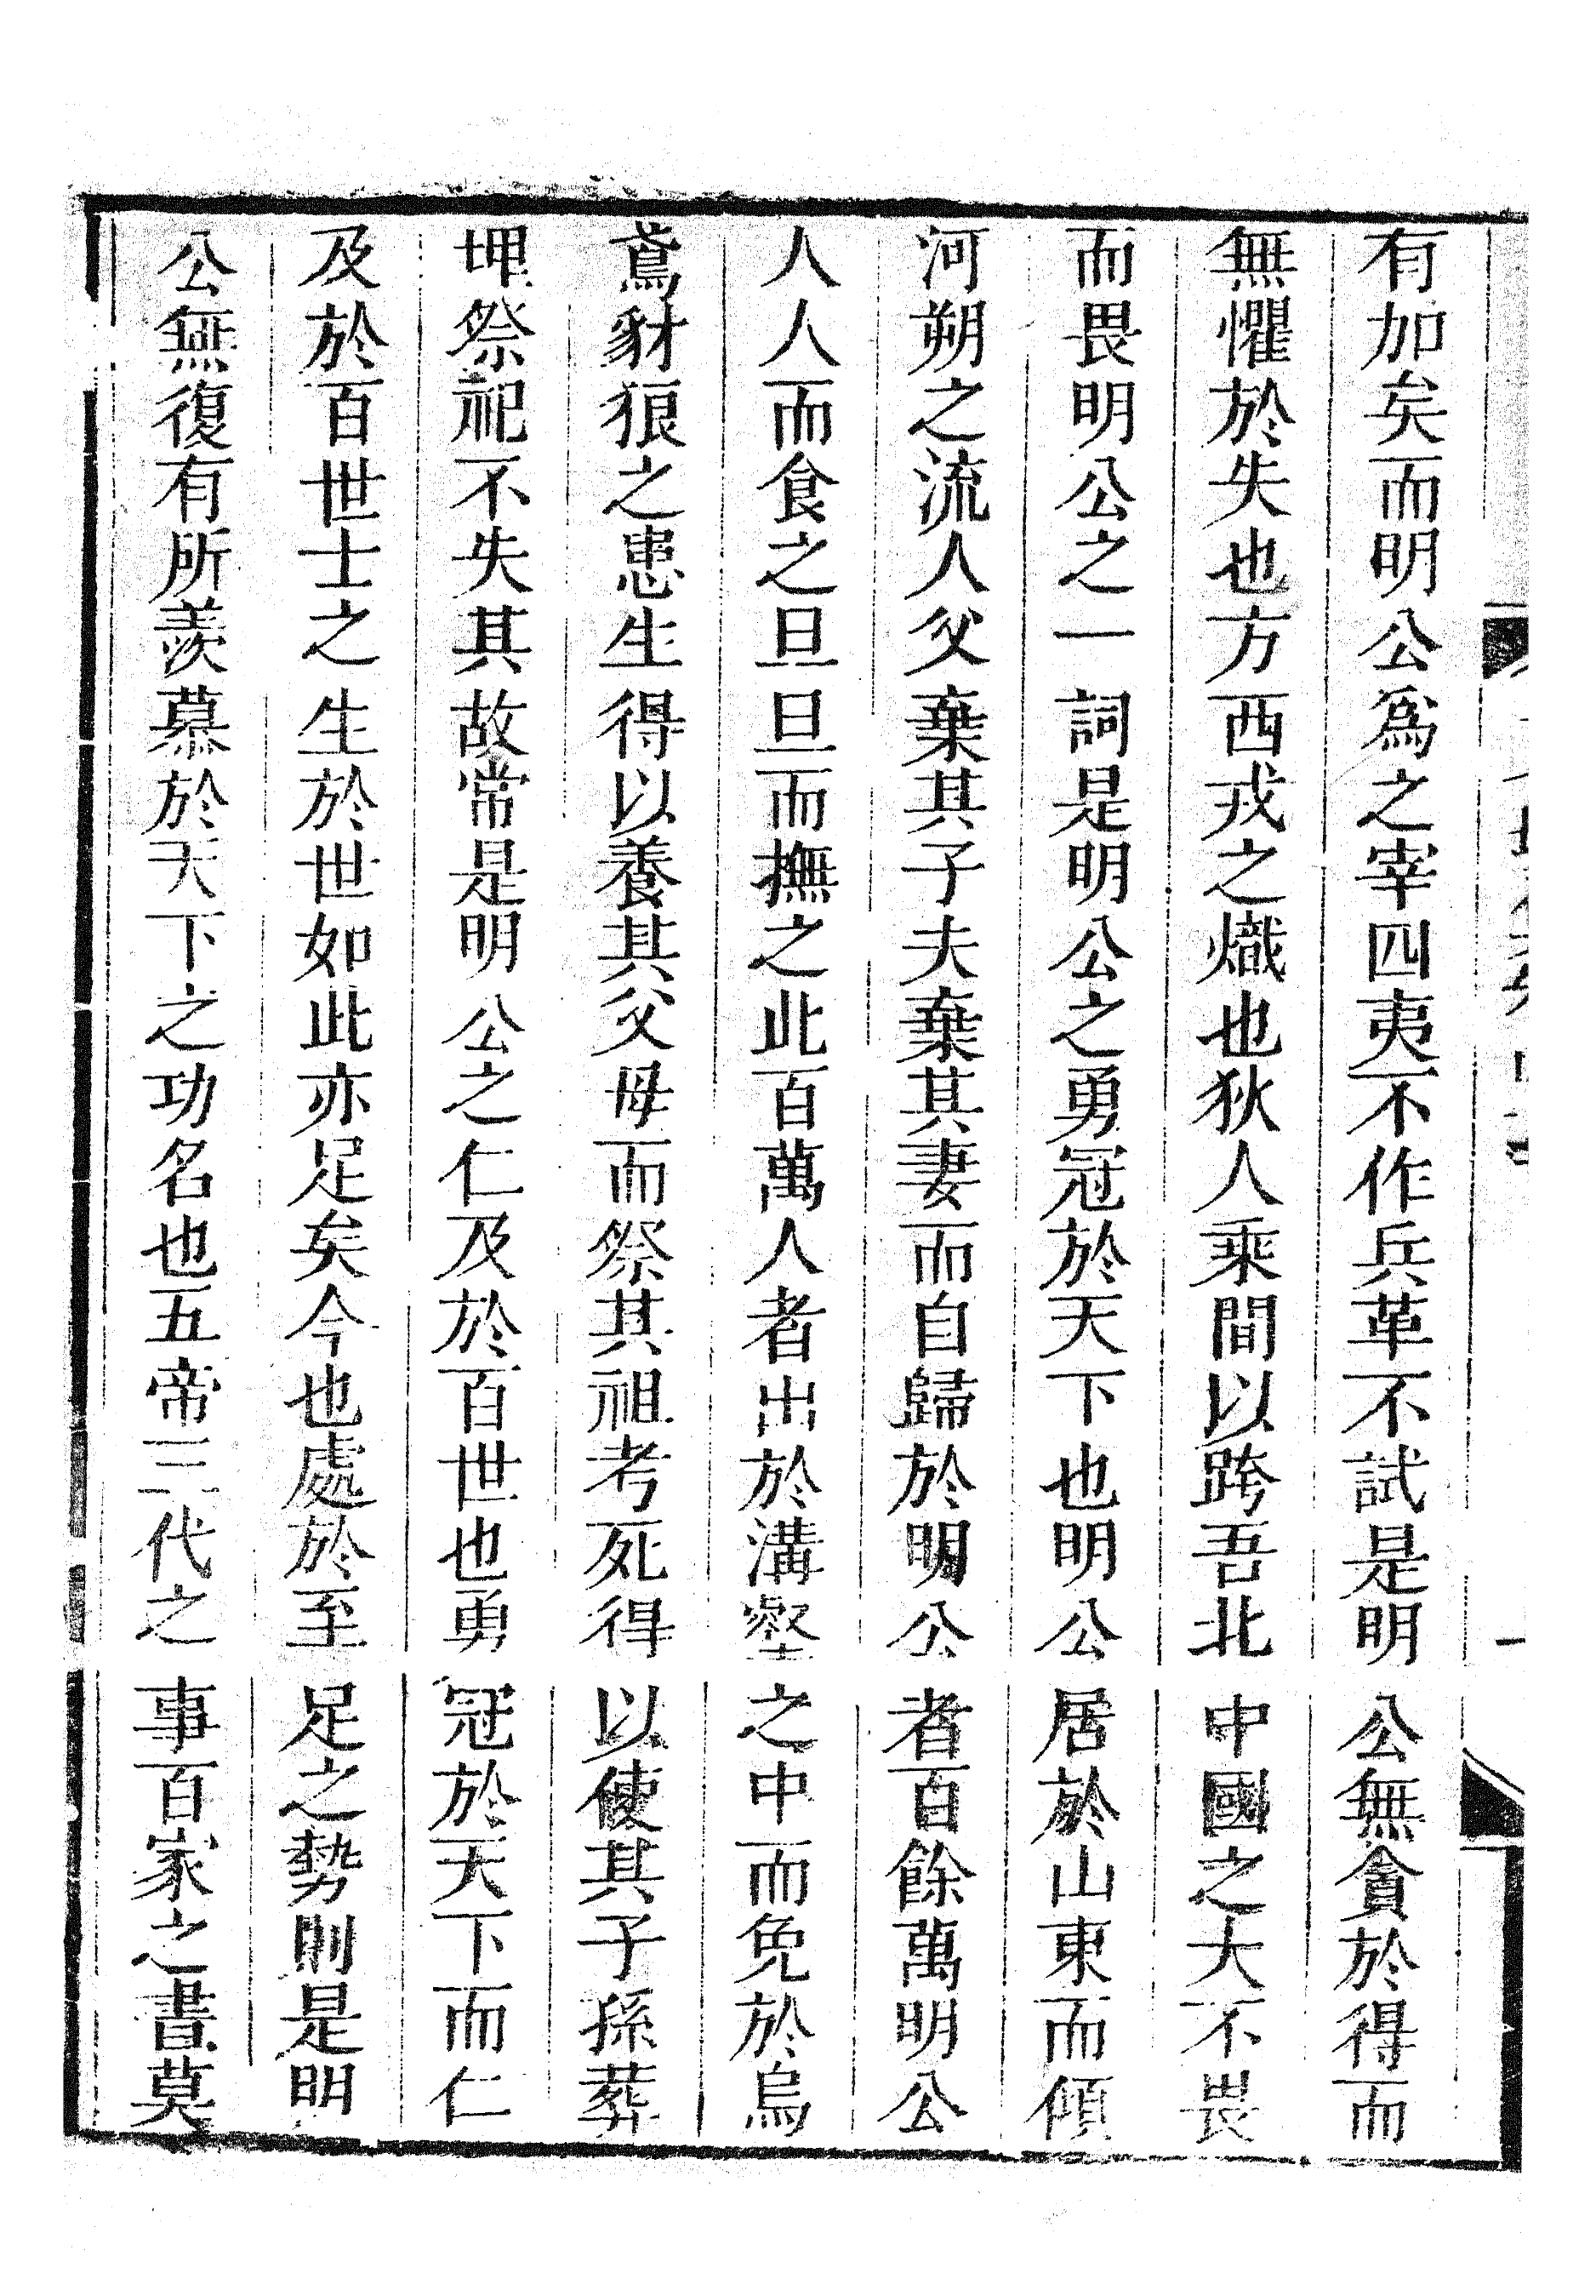 有加矣而明公爲之宰四夷不作兵革不試是明公無貪於得而
無懼於失也方西戎之熾也狄人乘間以跨吾北中國之大不畏
而畏明公之一詞是明公之勇冠於天下也明公居於山東而傾
河朔之流人父棄其子夫棄其妻而自歸於明公者百餘萬明公
人人而食之旦旦而撫之此百萬人者出於溝壑之中而免於烏
鳶豺狼之患生得以養其父母而祭其祖考死得以使其子孫葬
埋祭祀不失其故常是明公之仁及於百世也勇冠於天下而仁
及於百世士之生於世如此亦足矣今也處於至足之勢則是明
公無復有所羨慕於天下之功名也五帝三代之事百家之書莫